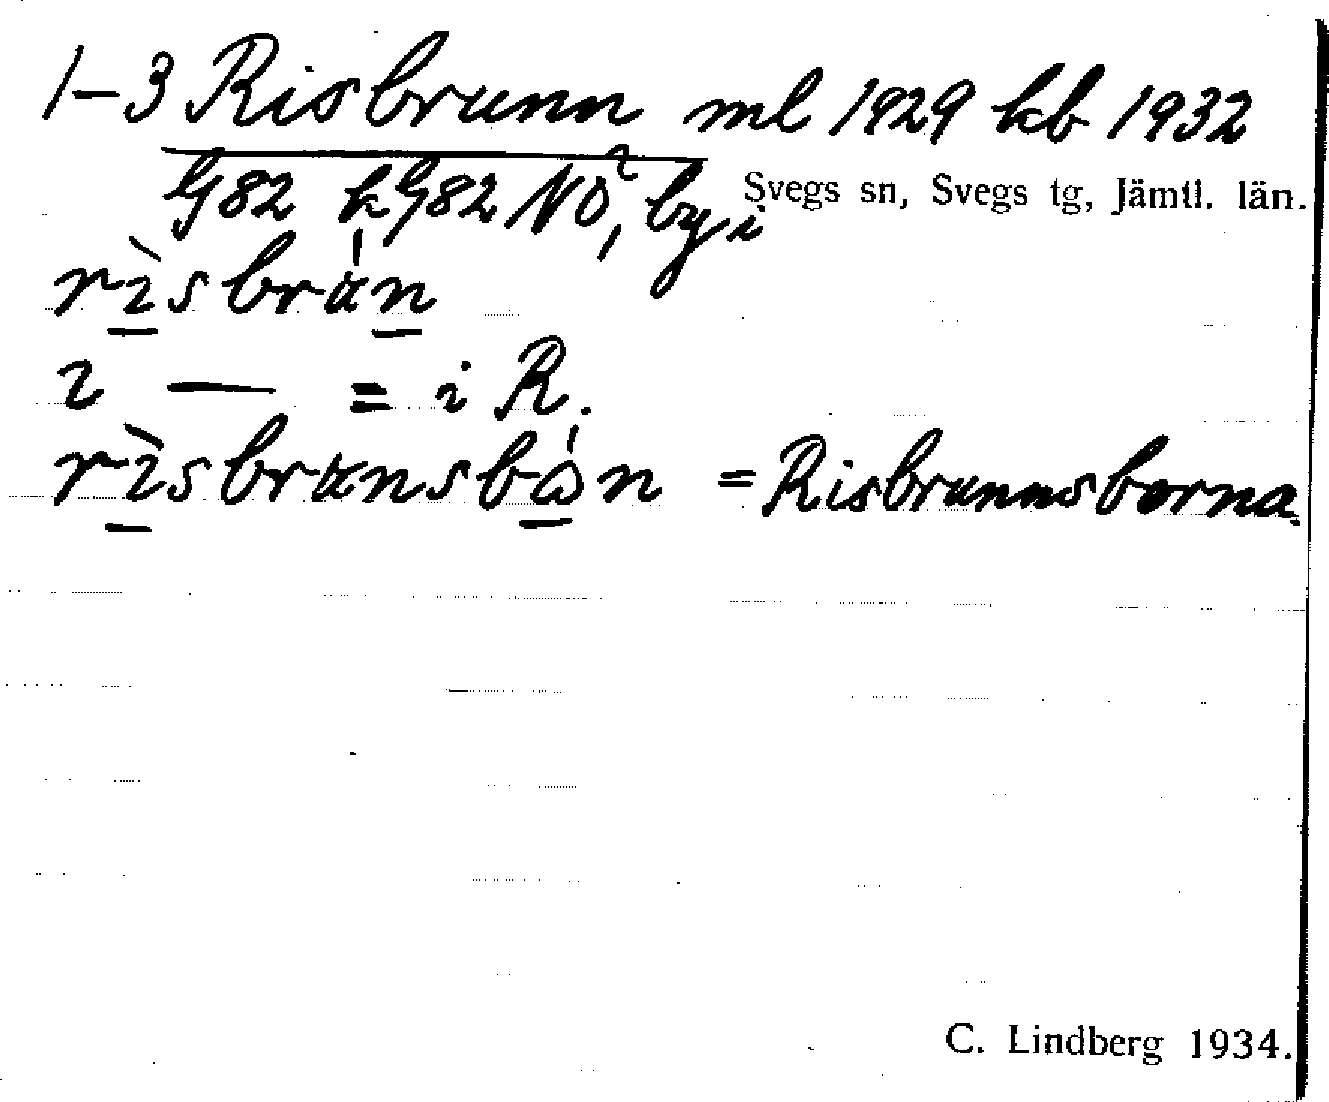 1-3 Risbrunn ml 1929 kb 1932
G82 k G82 NÖ, by i Svegs sn, Svegs tg, Jämtl. län.
rìsbrán
i — = i R.
rìsbransbån = Risbrunnsborna.
C. Lindberg 1934.